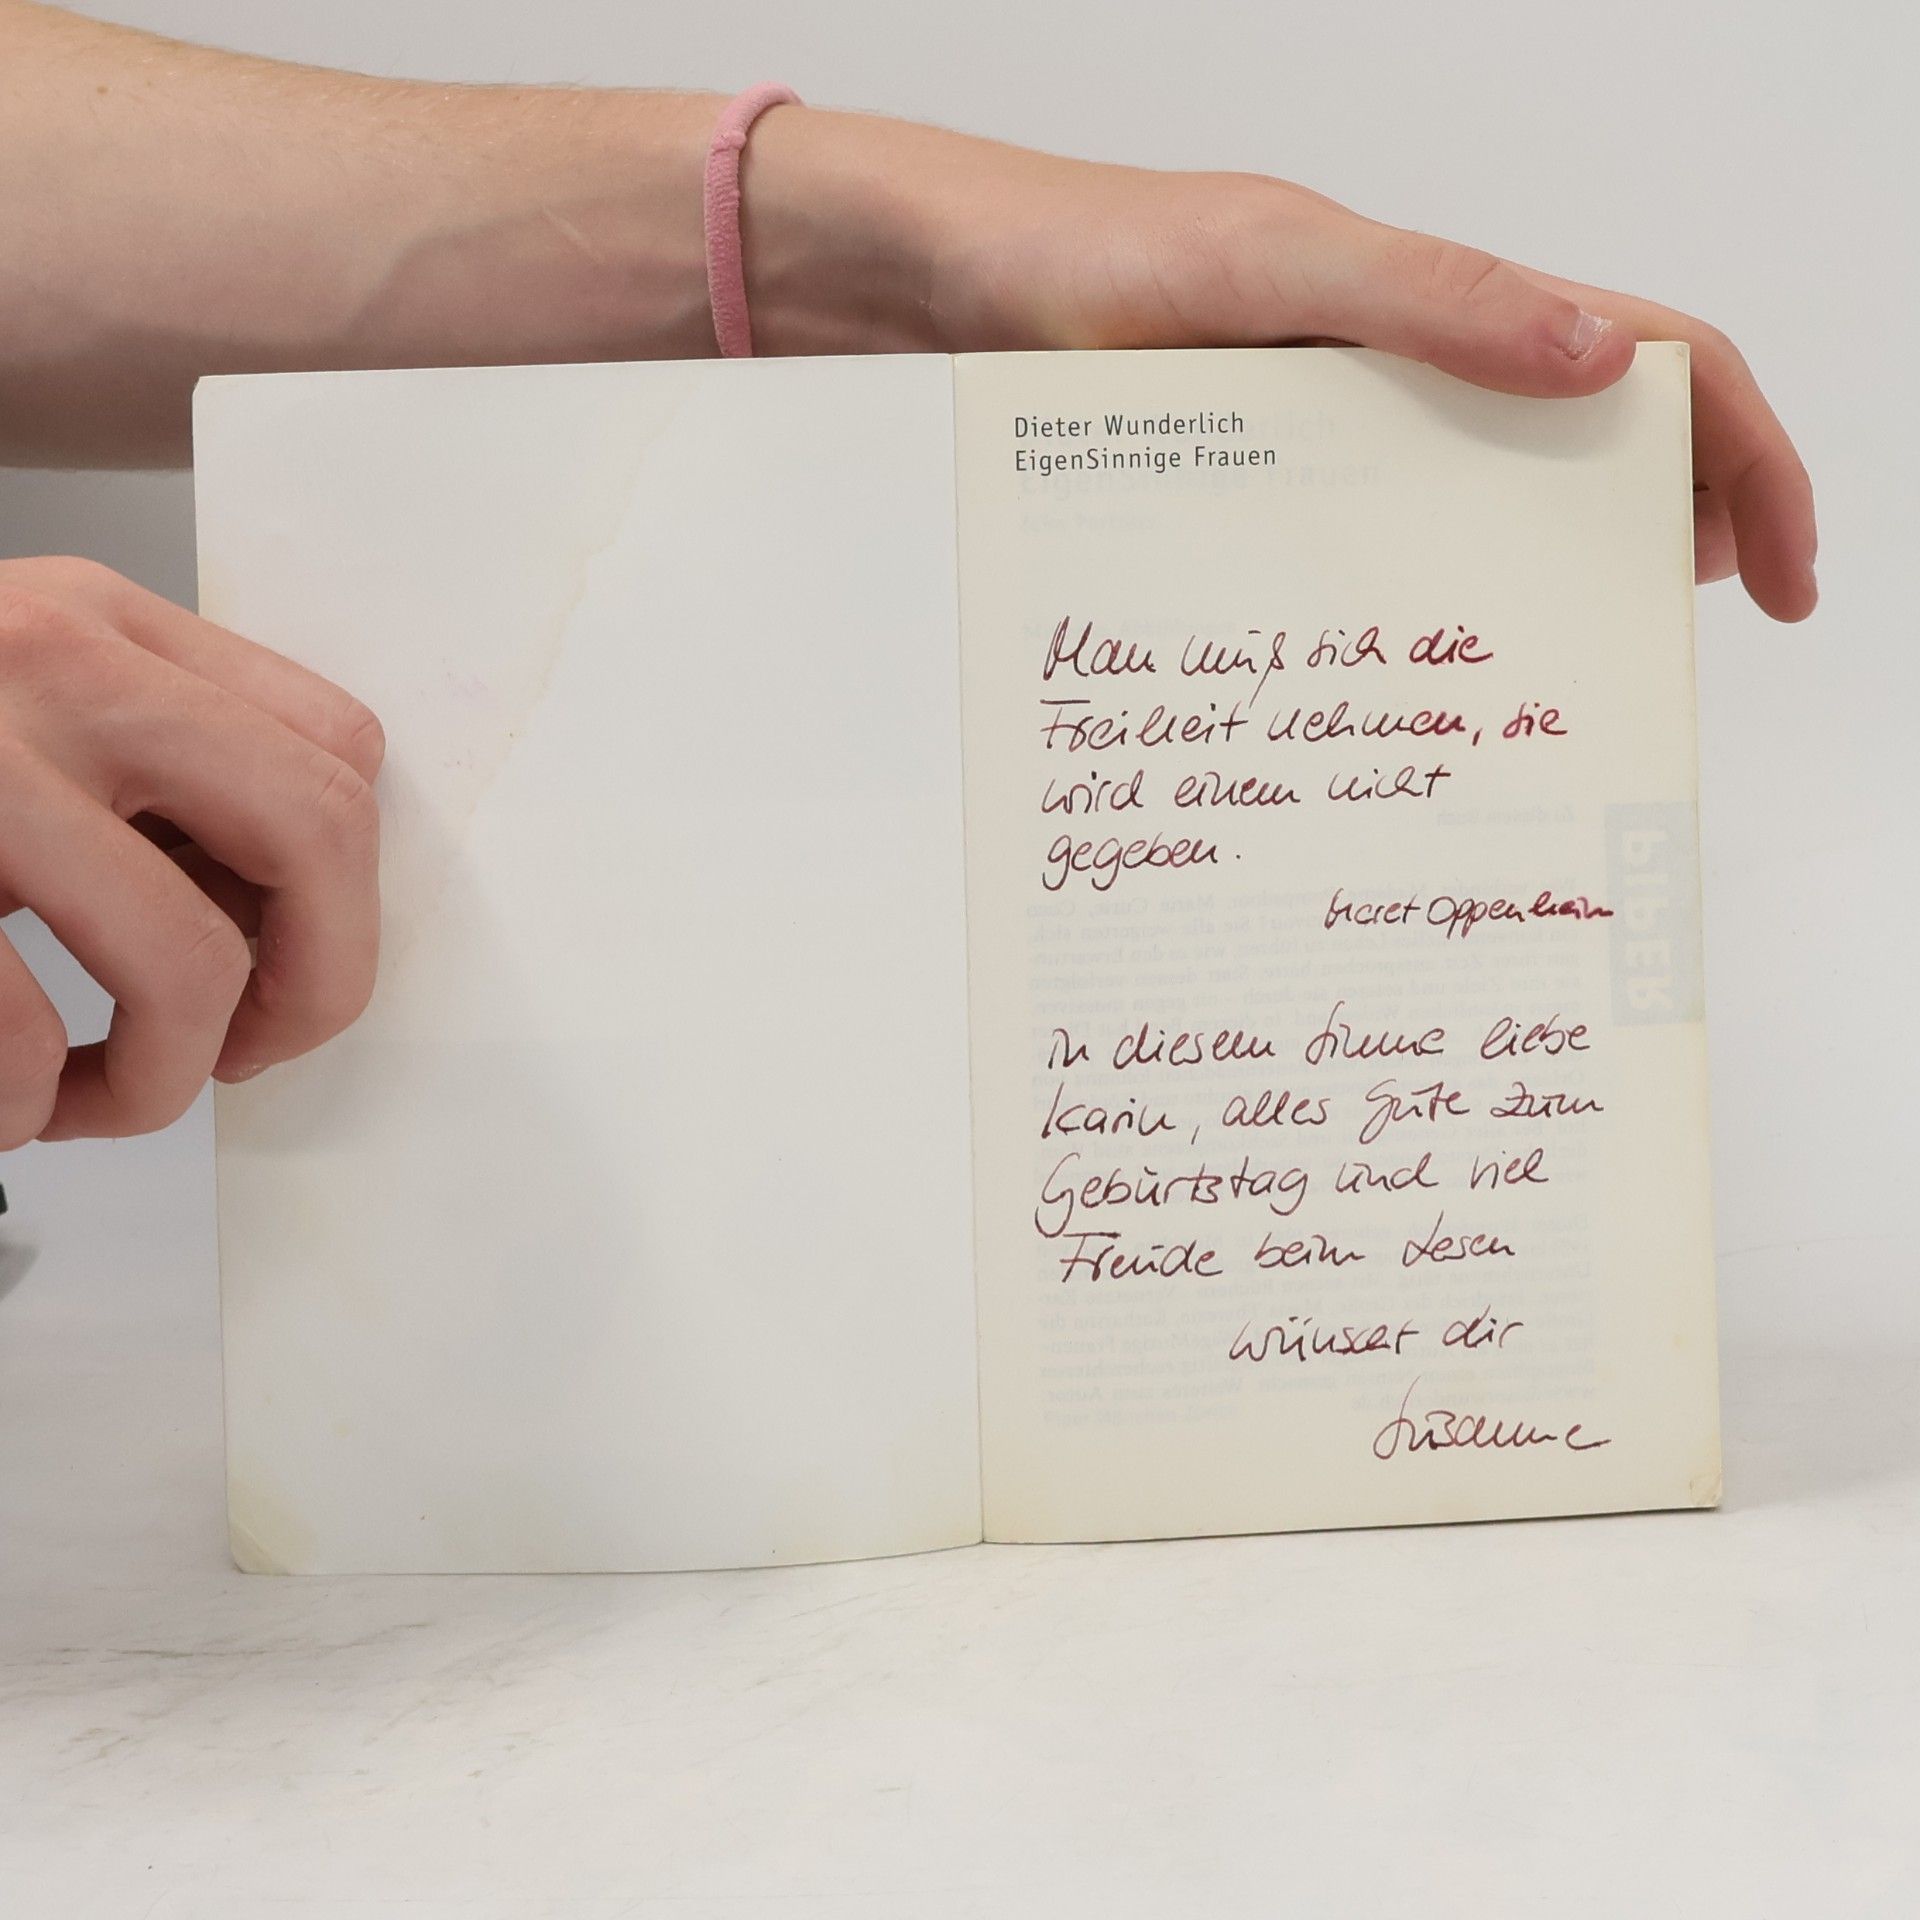 Dieter Wunderlich
EigenSinnige Frauen
Man muß sich die
Freiheit nehmen, sie
wird einem nicht
gegeben.
Meret Oppenheim
in diesem Sinne liebe
Karin, alles Gute zum
Geburtstag und viel
Freude beim Lesen
wünscht dir
Susanne